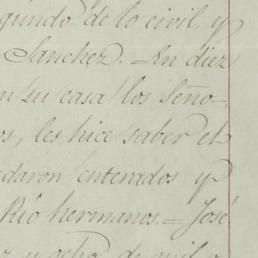 gundo de lo civil, y
Sanchez. = En diez
en su casa los Seño-
os, les hice saber el
edaron enterados y
Rio hermanos. = José
y ocho de mil o